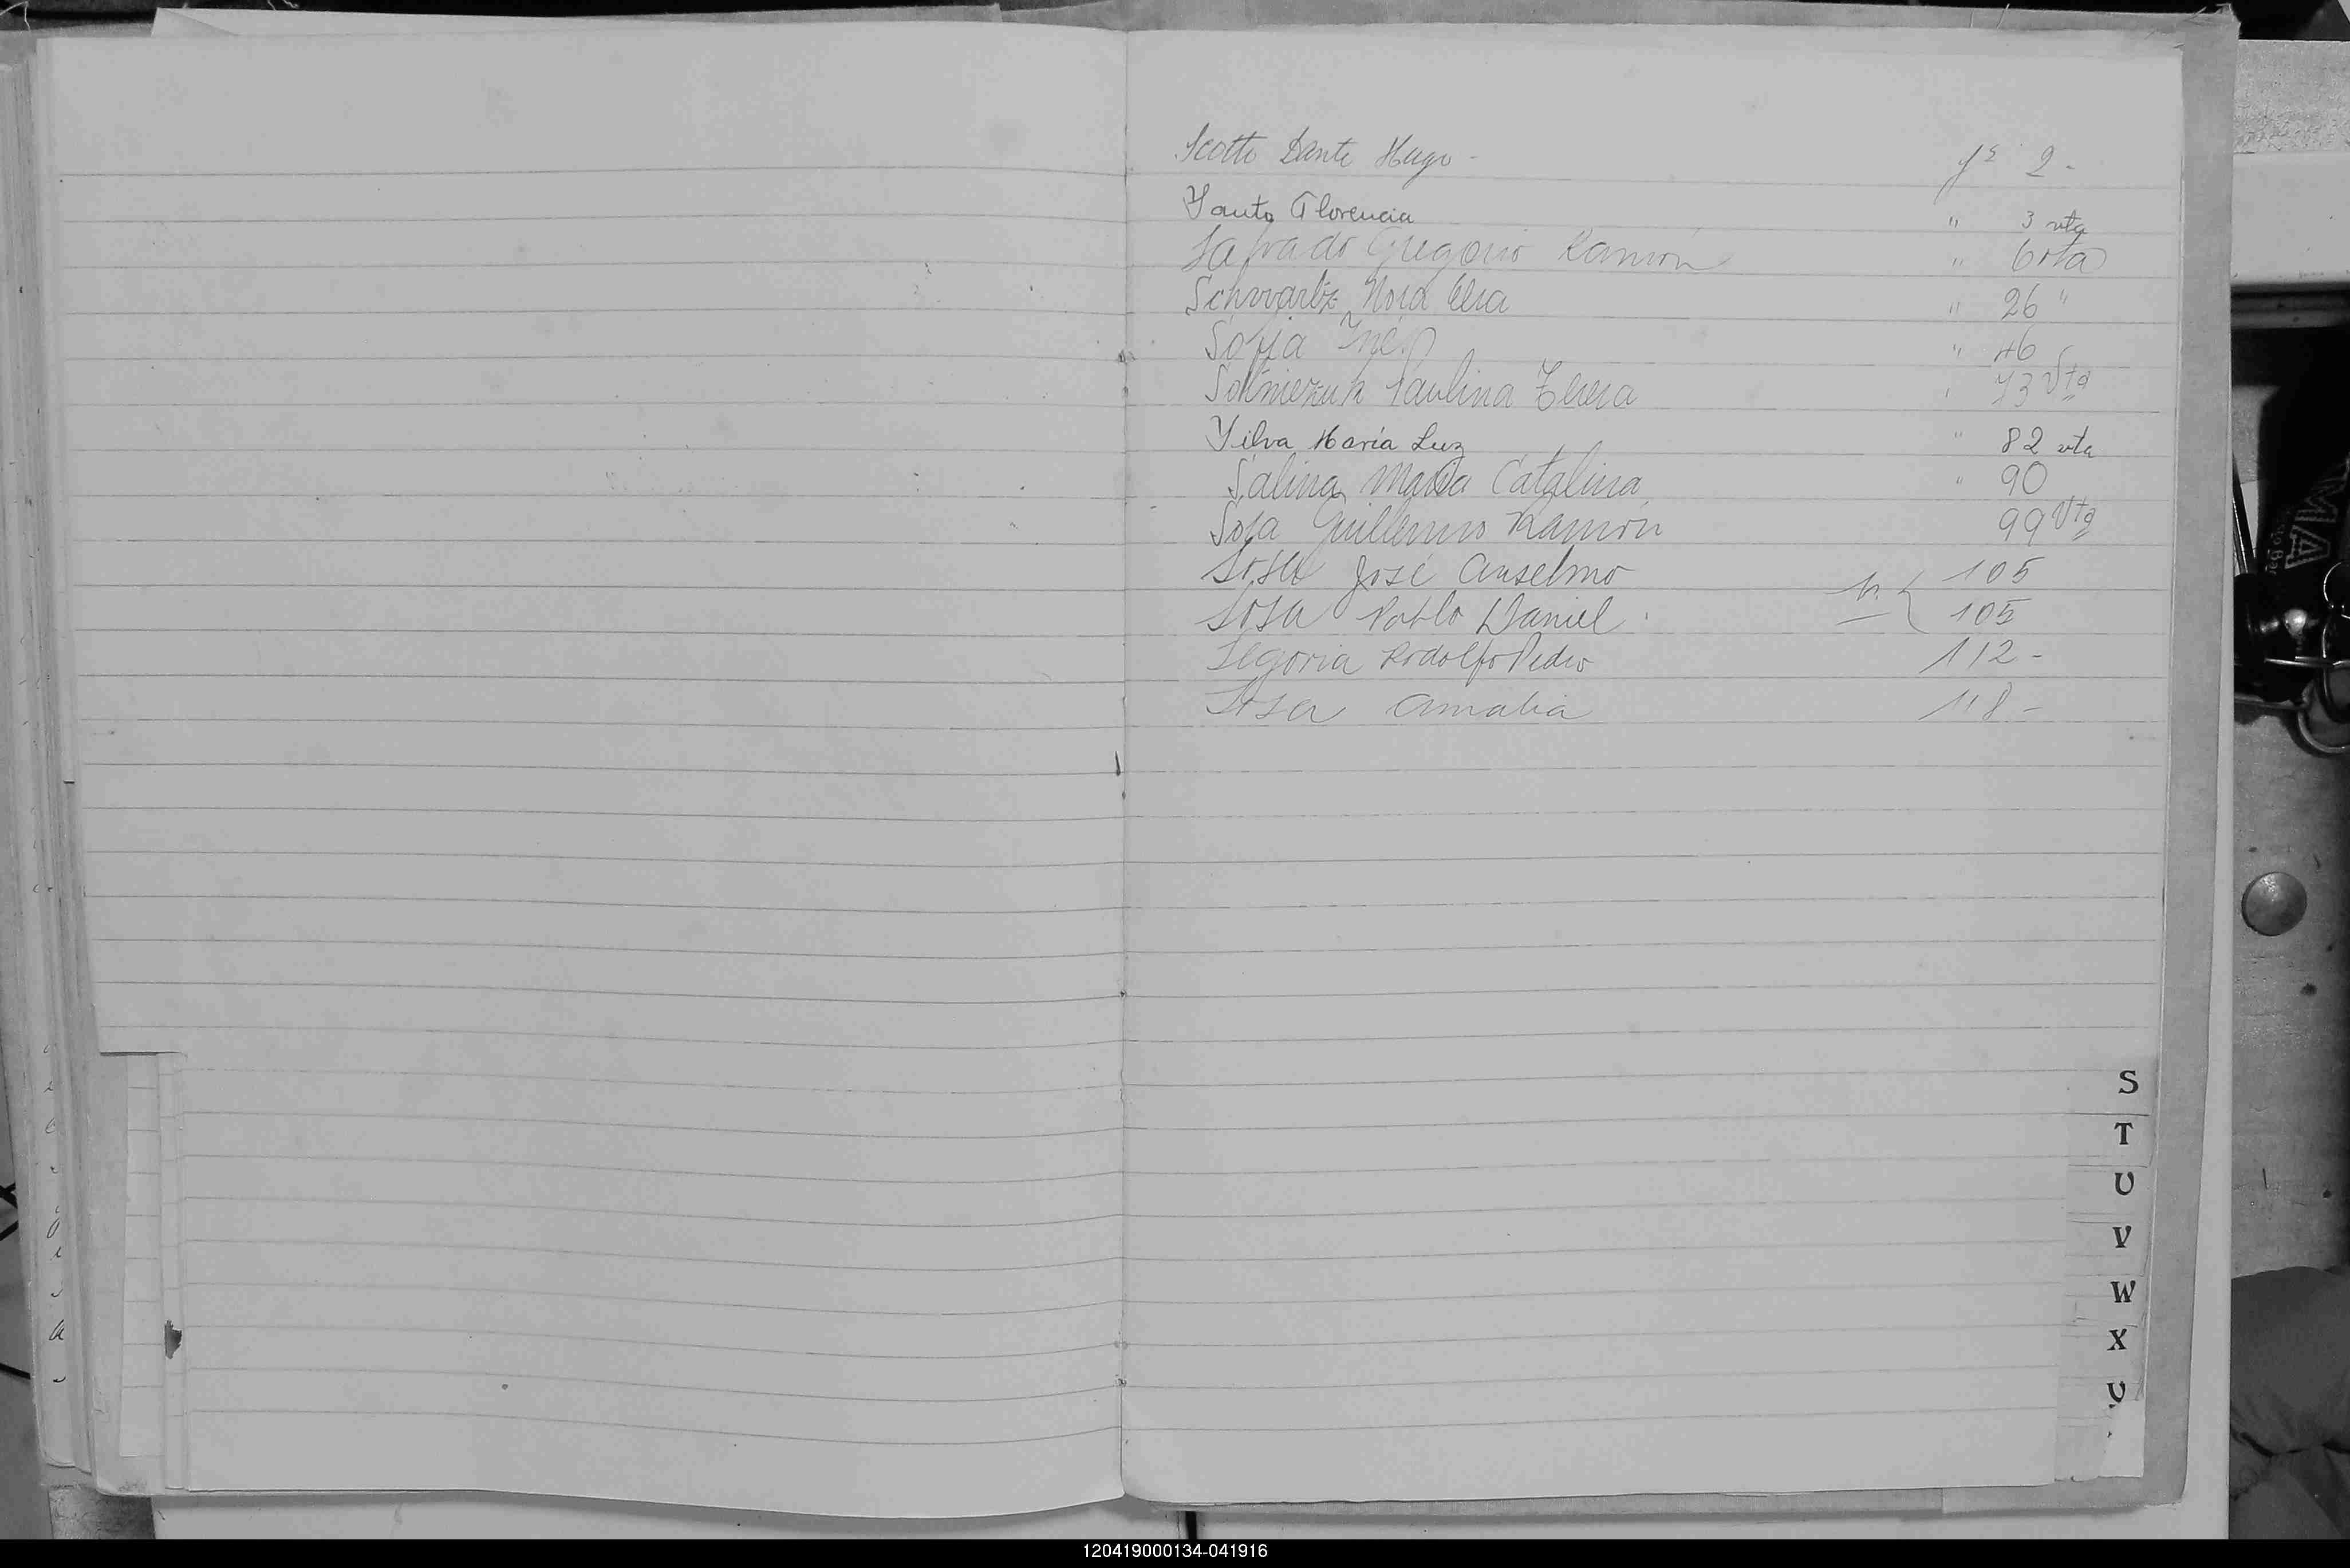 Scotto Dante Hugo - fs 2 -
Santo Florencia " 3 vta
Salvado Gregorio Ramón " 6 vta
Schwartz Nora Elsa " 26 "
Sofia Iné " 46
Paulina Teresa " 73 Vta
Silva María Luz " 82 vta
Salina María Catalina " 90
Sosa Guillermo Ramón 99 Vta
Sosa José Anselmo 105
Sosa Pablo Daniel 105
Segovia Rodolfo Pedro 112 -
Sosa Amalia 118 -
S
T
U
V
W
X
Y
120419000134-041916